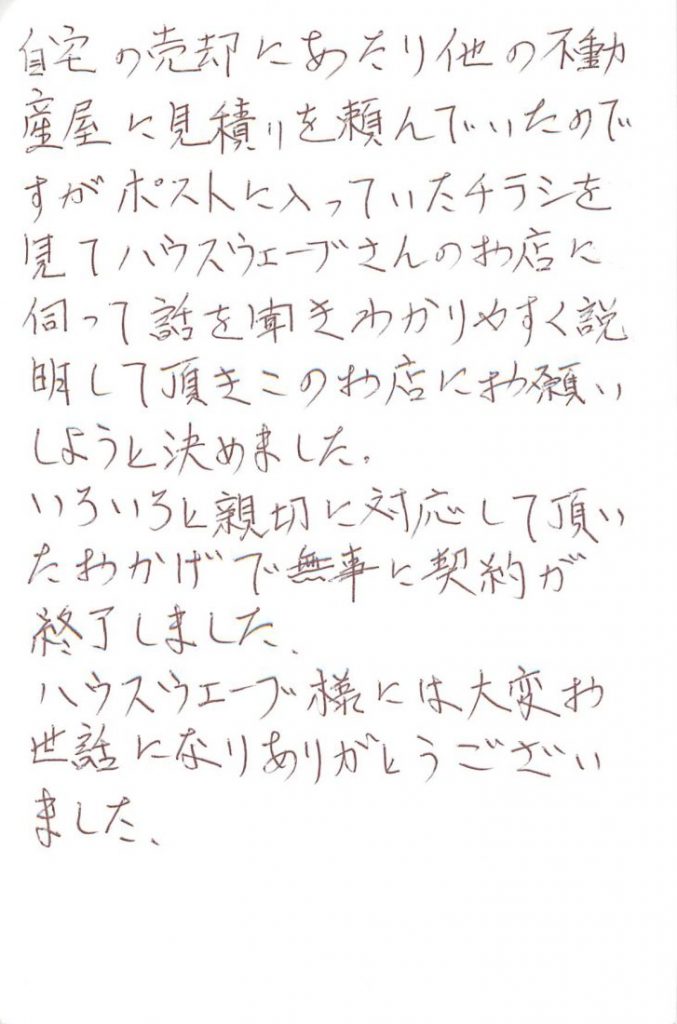 自宅の売却にあたり他の不動
産屋に見積りを頼んでいたので
すがポストに入っていたチラシを
見てハウスウェーブさんのお店に
伺って話を聞きわかりやすく説
明して頂きこのお店にお願い
しようと決めました。
いろいろと親切に対応して頂い
たおかげで無事に契約が
終了しました、
ハウスウエーブ様には大変お
世話になりありがとうござい
ました、